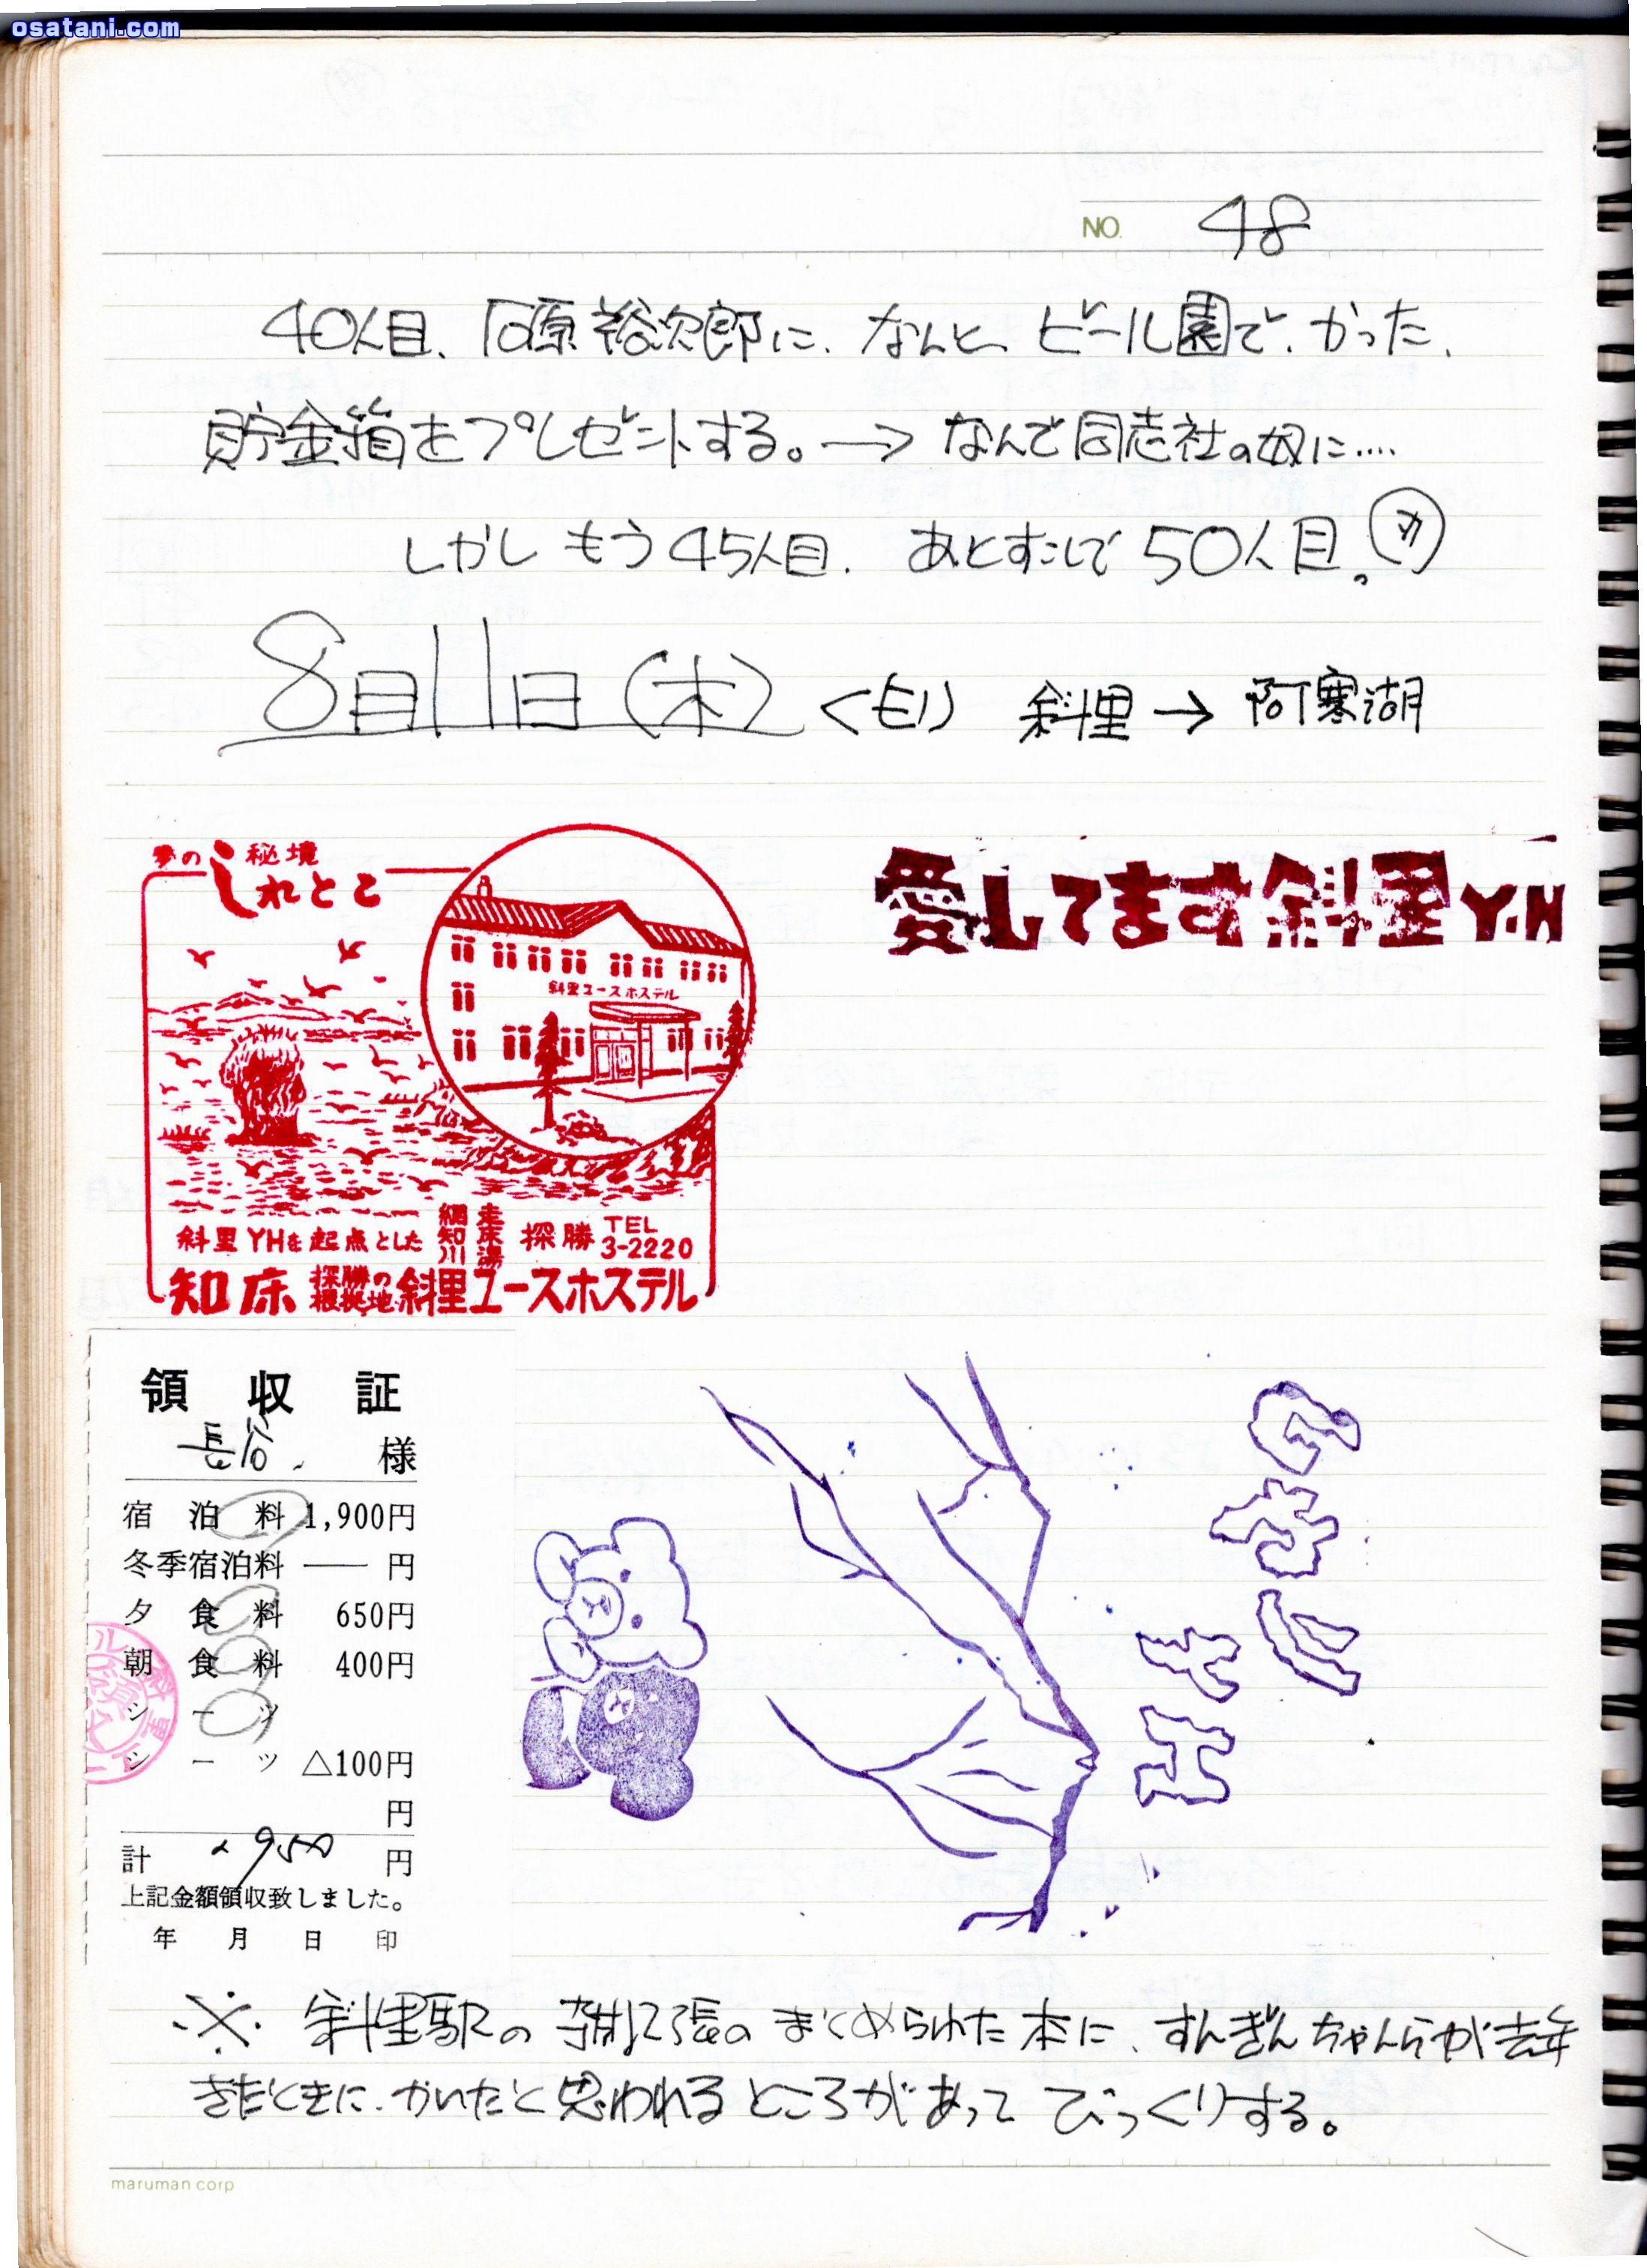 osatani.com
NO. 48
40人目、石原裕次郎に、なんと、ビール園で、かった、
貯金箱をプレゼントする。→ なんで同志社の奴に....
しかし もう45人目. あとすこしで 50人目。
8月11日(木) 斜里 → 阿寒湖
夢の秘境
しれとこ
愛してます斜里Y.H
斜里ユースホステル
斜里YHを起点とした 網走 知床 川湯 探勝 TEL 3-2220
知床 探勝の根拠地 斜里ユースホステル
領収証
長谷 様
宿泊料 1,900円
冬季宿泊料 ── 円
夕食料 650円
朝食料 400円
シーツ
シーツ △100円
円
計 2950 円
上記金額領収致しました。
年 月 日 印
※ 斜里駅の雑記張のまとめられた本に、すんぎんちゃんらが去年
きたときに、かいたと思われるところがあって びっくりする。
maruman corp